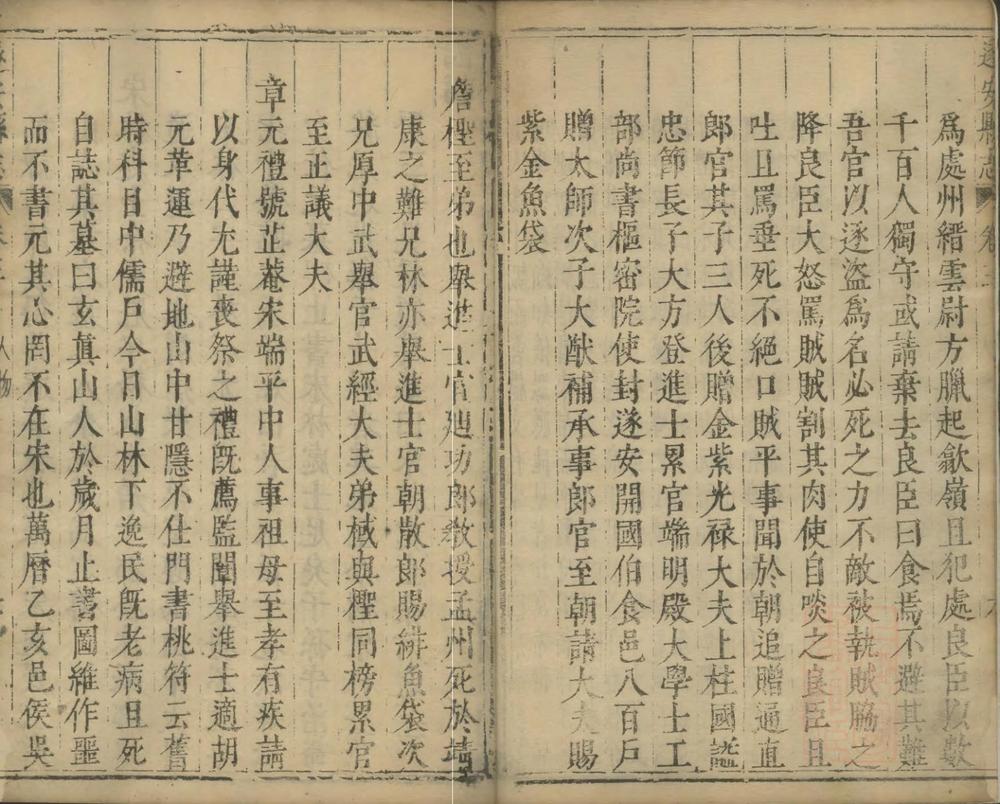 遂安縣志 卷三
爲處州縉雲尉方臘起歙嶺且犯處良臣以數
千百人獨守或請棄去良臣曰食焉不避其難
吾官以逐盜爲名必死之力不敵被執賊脇之
降良臣大怒罵賊賊割其肉使自啖之良臣且
吐且罵垂死不絕口賊平事聞於朝追贈通直
郎官其子三人後贈金紫光祿大夫上柱國謚
忠節長子大方登進士累官端明殿大學士工
部尚書樞密院使封遂安開國伯食邑八百戶
贈太師次子大猷補承事郎官至朝請大夫賜
紫金魚袋
詹樫至弟也舉進士官廸功郎教授孟州死於靖
康之難兄林亦舉進士官朝散郎賜緋魚袋次
兄厚中武舉官武經大夫弟棫與樫同榜累官
至正議大夫
章元禮號芷菴宋端平中人事祖母至孝有疾請
以身代尢謹喪祭之禮旣薦監闈舉進士適胡
元革運乃避地山中甘隱不仕門書桃符云舊
時科目中儒戶今日山林下逸民旣老病且死
自誌其墓曰玄眞山人於歲月止書圖維作噩
而不書元其心罔不在宋也萬曆乙亥邑侯吳
人物